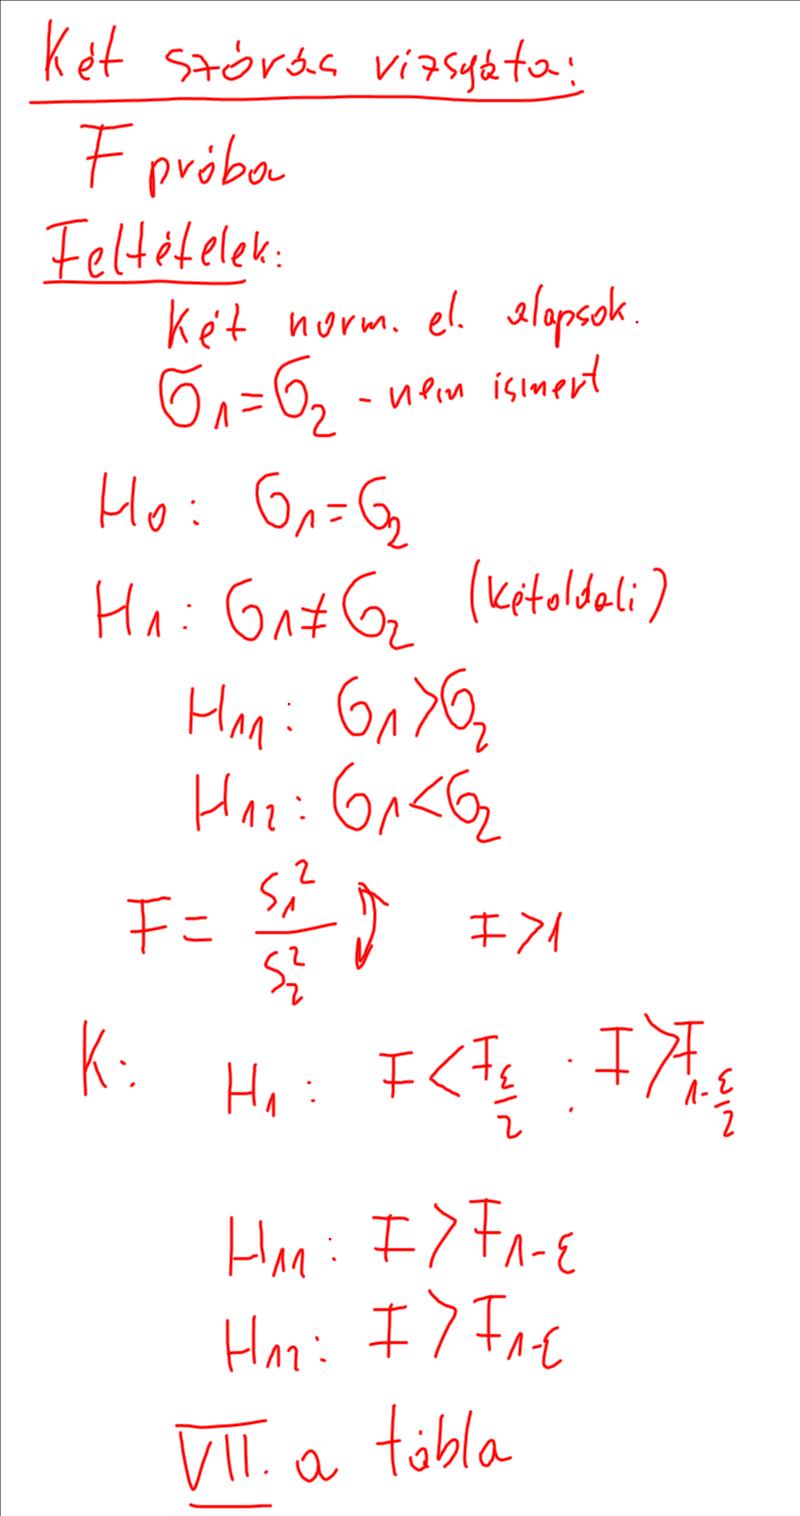 Két szórás vizsgáta:
F próba
Feltételek:
Két norm. el. alapsok.
σ₁=σ₂ - nem ismert
H₀: σ₁=σ₂
H₁: σ₁≠σ₂ (kétoldali)
H₁₁: σ₁>σ₂
H₁₂: σ₁<σ₂
F = s₁²/s₂² F>1
K: H₁: F<F_ε/2 ; F>F_1-ε/2
H₁₁: F>F_1-ε
H₁₂: F>F_1-ε
VII. a tábla